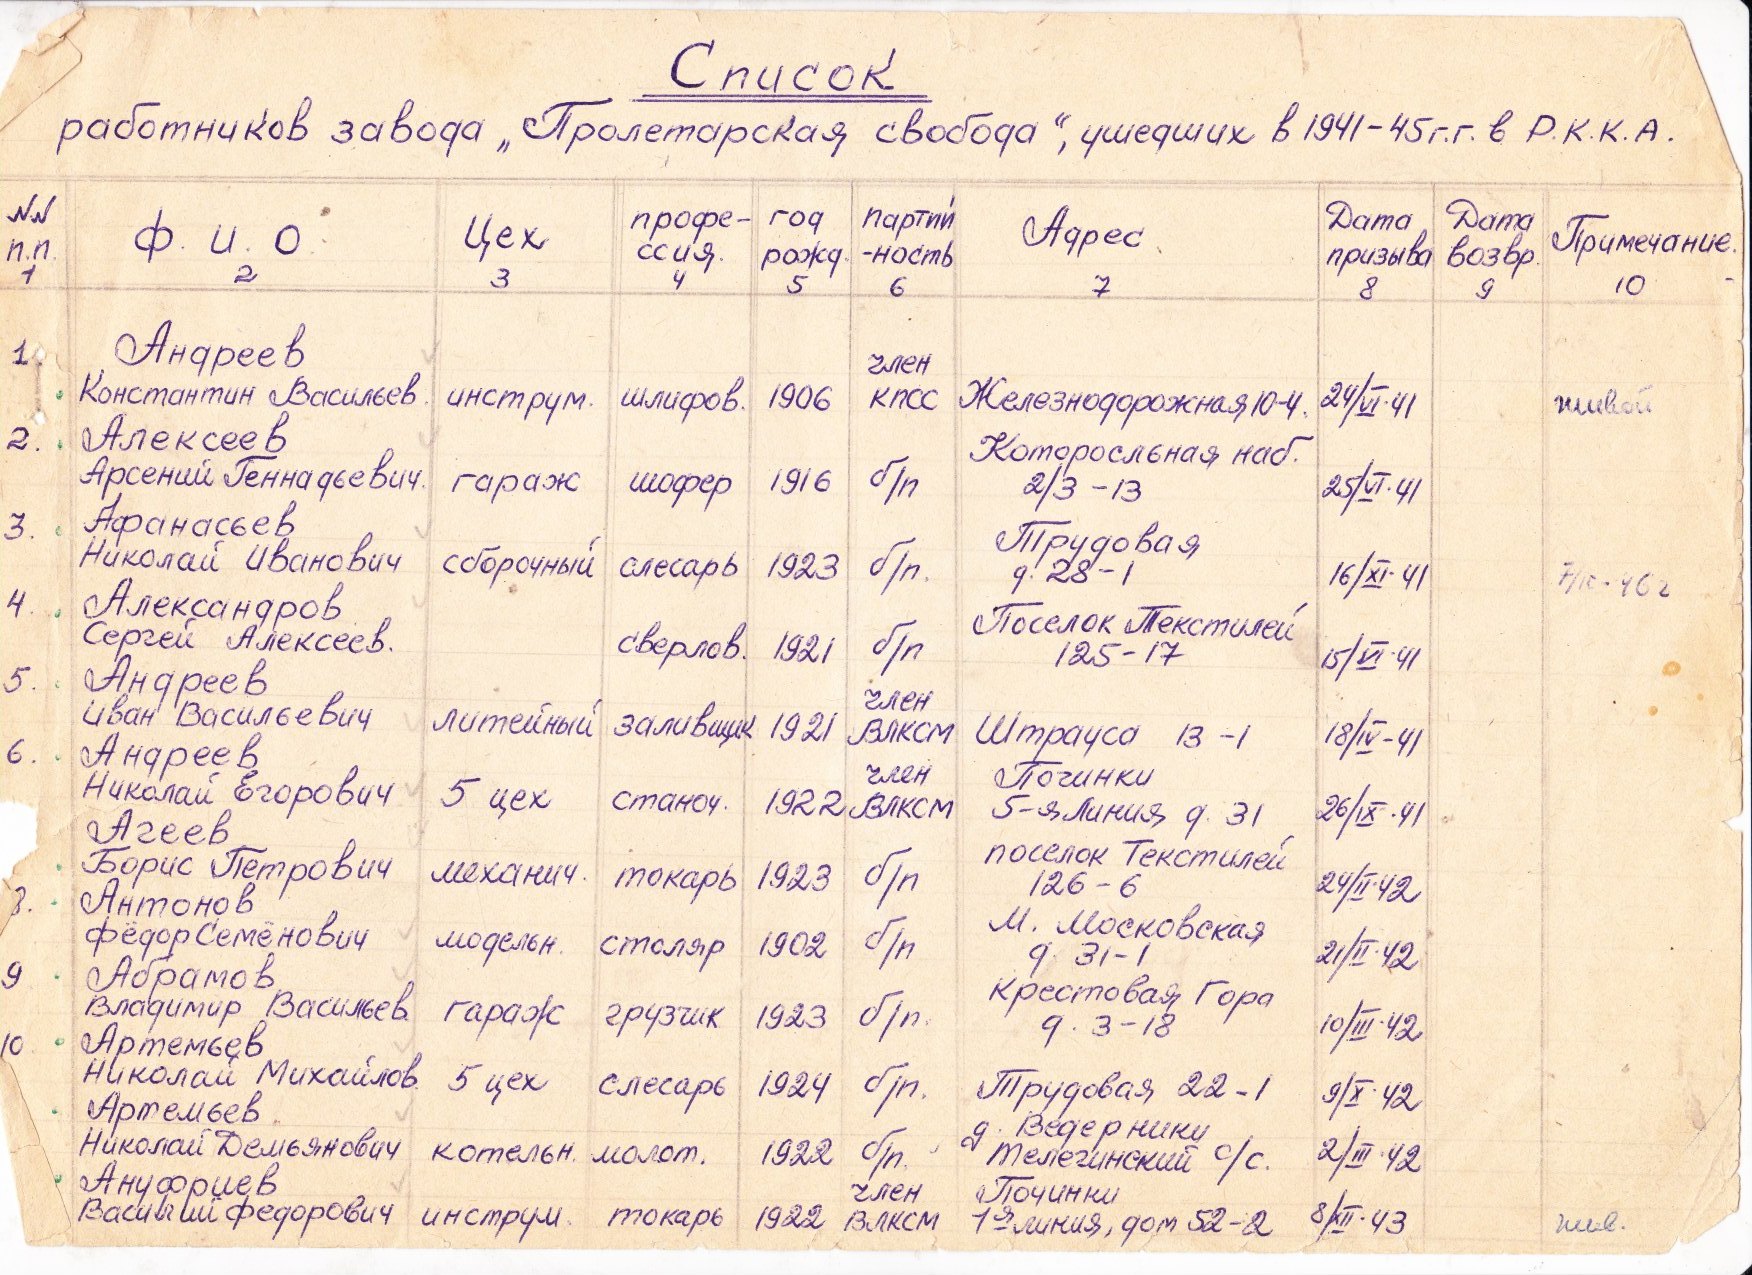 Список
работников завода „Пролетарская свобода“, ушедших в 1941-45г.г. в Р.К.К.А.
NN п.п. Ф. И. О. Цех профе-ссия. год рожд. партий-ность Адрес Дата призыва Дата возвр. Примечание.
1 2 3 4 5 6 7 8 9 10
1. Андреев член
Константин Васильев. инструм. шлифов. 1906 КПСС Железнодорожная 10-4. 24/VI-41 живой
2. Алексеев Которосльная наб.
Арсений Геннадьевич. гараж шофер 1916 б/п 2/3 -13 25/VI-41
3. Афанасьев Трудовая
Николай Иванович сборочный слесарь 1923 б/п. д. 28-1 16/XI-41
4. Александров Поселок Текстилей
Сергей Алексеев. сверлов. 1921 б/п 125-17 15/VI-41
5. Андреев член
Иван Васильевич литейный заливщик 1921 ВЛКСМ Штрауса 13 -1 18/IV-41
6. Андреев член Починки
Николай Егорович 5 цех станоч. 1922 ВЛКСМ 5-я Линия д. 31 26/IX-41
Агеев поселок Текстилей
Борис Петрович механич. токарь 1923 б/п 126-6 24/II-42
8. Антонов М. Московская
Фёдор Семёнович модельн. столяр 1902 б/п д. 31-1 21/II-42
9 Абрамов Крестовая Гора
Владимир Васильев. гараж грузчик 1923 б/п. д. 3-18 10/III-42
10 Артемьев
Николай Михайлов. 5 цех слесарь 1924 б/п. Трудовая 22-1 9/X-42
Артемьев д. Ведерники
Николай Демьянович котельн. молот. 1922 б/п. Телегинский с/с. 2/III-42
Ануфриев член Починки
Василий Федорович инструм. токарь 1922 ВЛКСМ 1я линия, дом 52-2 8/XII-43 жив.